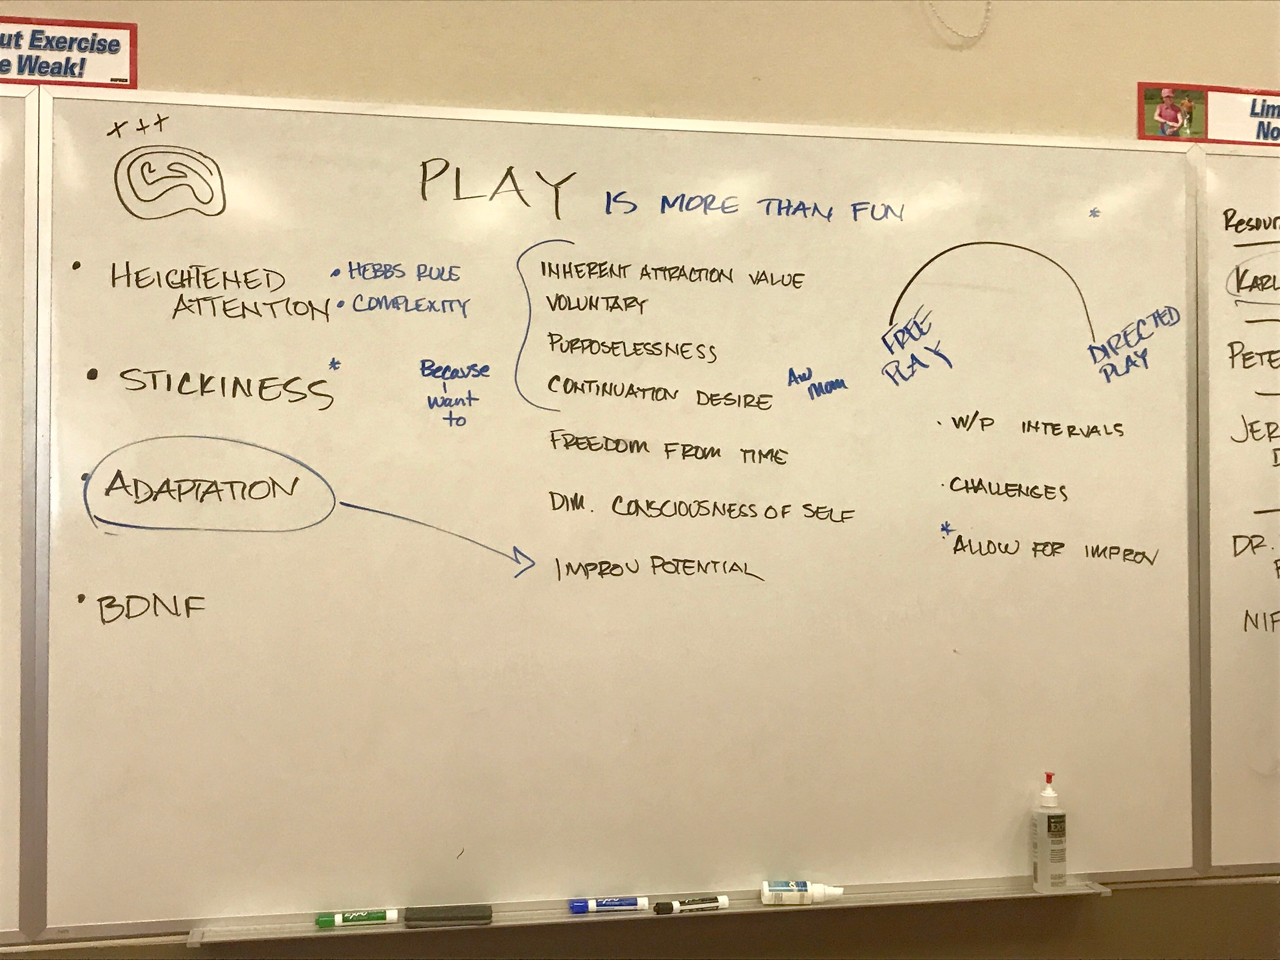 ut Exercise
e Weak!
Lim
No
+++
PLAY IS MORE THAN FUN
*
• HEIGHTENED
ATTENTION
• HEBBS RULE
• COMPLEXITY
• STICKINESS*
• ADAPTATION
• BDNF
Because
I
want
to
INHERENT ATTRACTION VALUE
VOLUNTARY
PURPOSELESSNESS
CONTINUATION DESIRE
Aw
Mom
FREEDOM FROM TIME
DIM. CONSCIOUSNESS OF SELF
IMPROV POTENTIAL
FREE
PLAY
DIRECTED
PLAY
· W/P INTERVALS
· CHALLENGES
* ALLOW FOR IMPROV
Resour
KARL
PETE
JER
DR.
NIF
expo